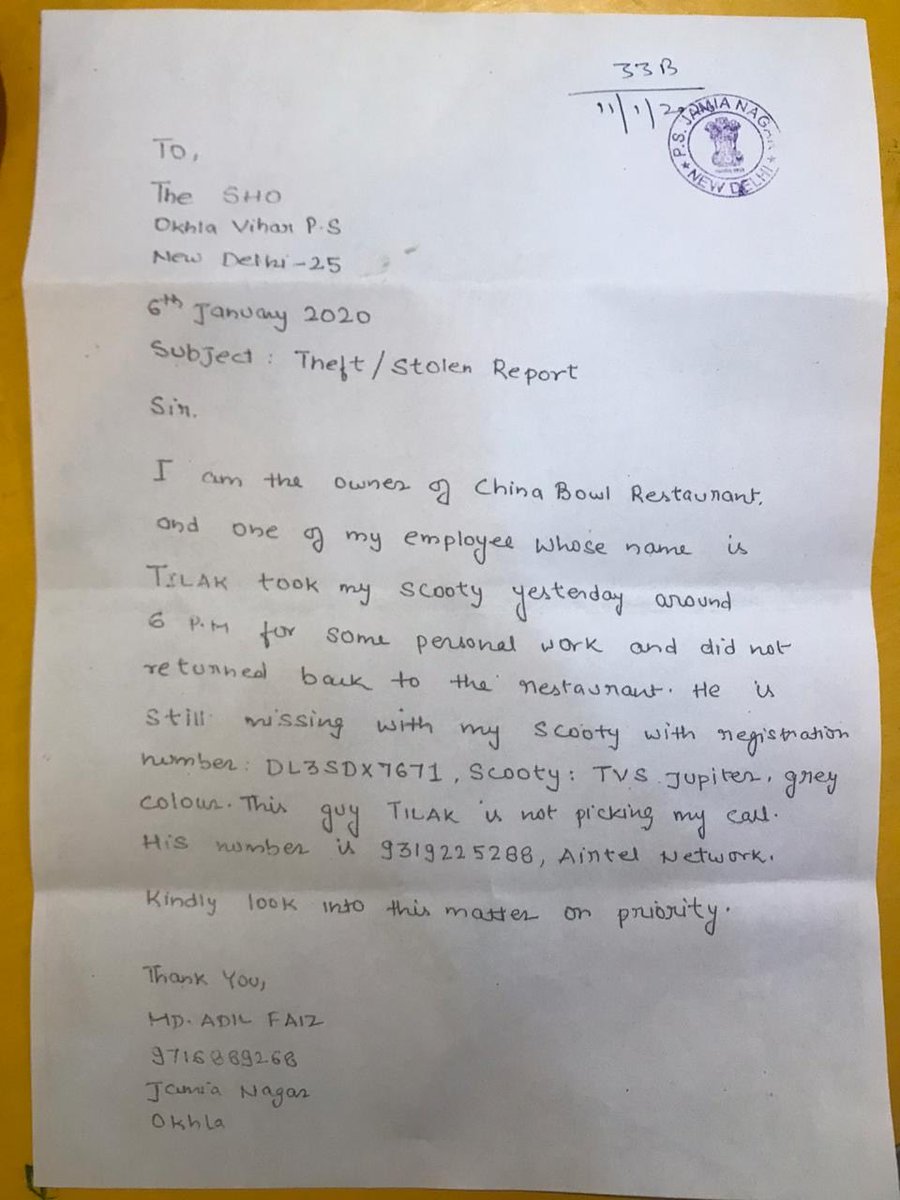 33B
11/1/20
P.S. JAMIA NAGAR
NEW DELHI
To,
The SHO
Okhla Vihar P.S
New Delhi-25
6th January 2020
Subject: Theft/Stolen Report
Sir.
I am the owner of China Bowl Restaurant.
and one of my employee whose name is
TILAK took my scooty yesterday around
6 P.M for some personal work and did not
returned back to the restaurant. He is
still missing with my scooty with registration
number: DL3SDX7671, Scooty: TVS Jupiter, grey
colour. This guy TILAK is not picking my call.
His number is 9319225288, Airtel Network.
Kindly look into this matter on priority.
Thank You,
MD. ADIL FAIZ
9716889268
Jamia Nagar
Okhla